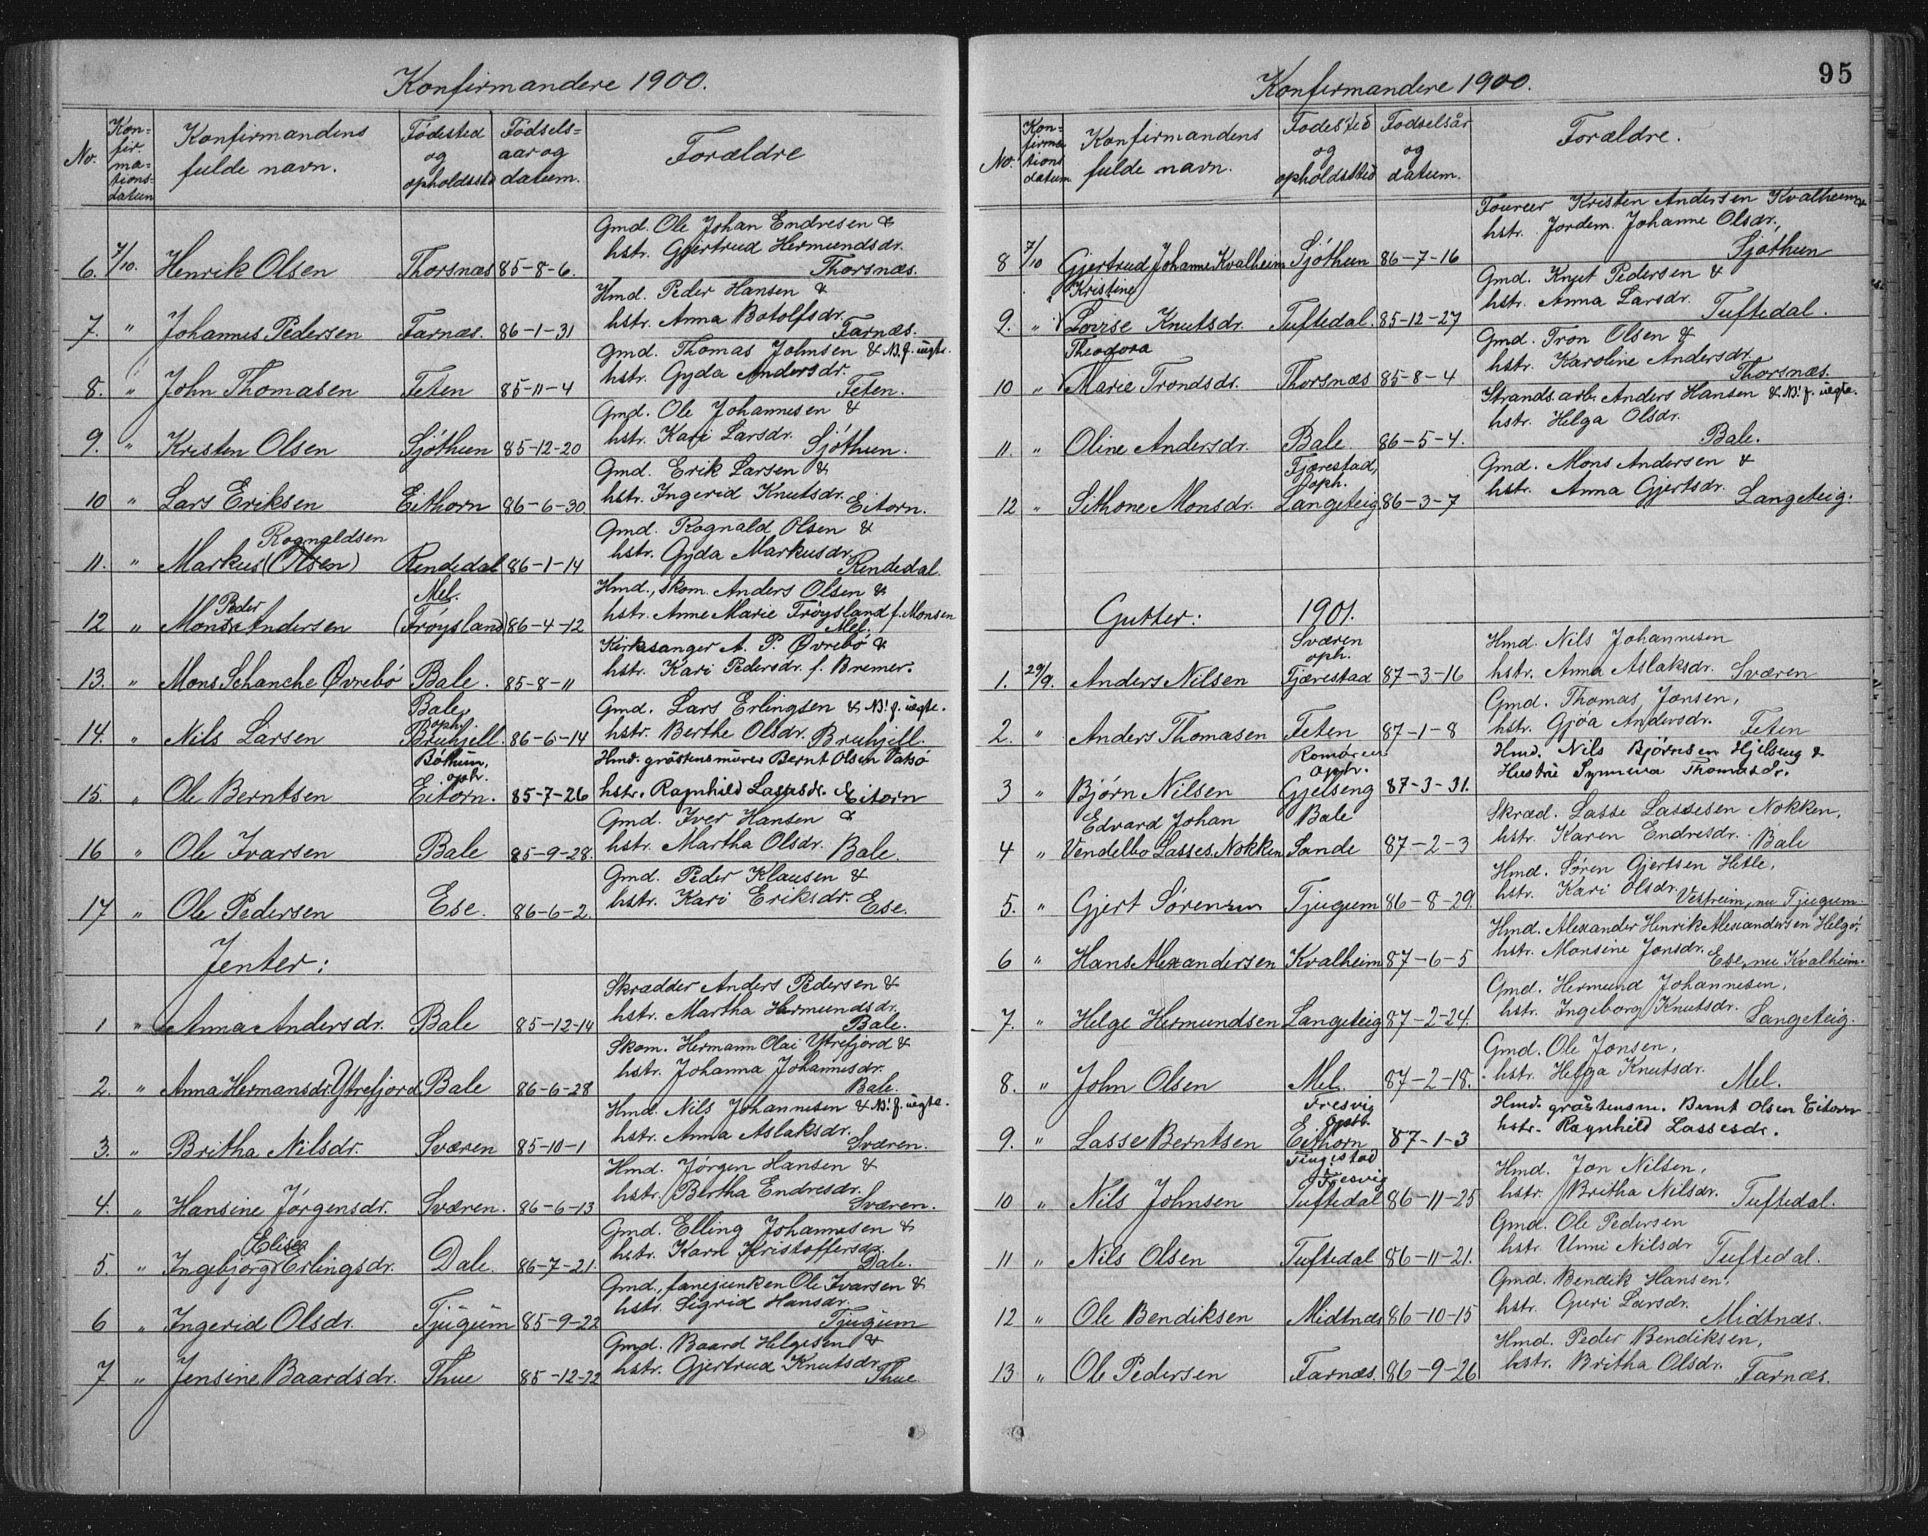 Konfirmandere 1900.
No. Konfirmationsdatum Konfirmandens fulde navn. Fødested og opholdssted Fødselsaar og datum. Forældre
6. 7/10. Henrik Olsen Thorsnæs 85-8-6. Gmd. Ole Johan Endresen & hstr. Gjertrud Hermundsdr. Thorsnæs.
7. " Johannes Pedersen Farnæs. 86-1-31 Hmd. Peder Hansen & hstr. Anna Botolfsdr. Farnæs.
8. " John Thomasen Feten 85-11-4 Gmd. Thomas Johnsen & N.! f. ægte. hstr. Gyda Andersdr. Feten.
9. " Kristen Olsen Sjøthun 85-12-20 Gmd. Ole Johannesen & hstr. Kari Larsdr. Sjøthun.
10 " Lars Eriksen Eithorn 86-6-30 Gmd. Erik Larsen & hstr. Ingerid Knutsdr. Eitorn.
11. " Markus (Olsen) Rognaldsen Rendedal 86-1-14 Gmd. Rognald Olsen & hstr. Gyda Markusdr. Rendedal.
12 " Mons Peder Andersen Mel. (Frøysland) 86-4-12 Hmd., skom. Anders Olsen & hstr. Anne Marie Frøysland f. Monsen Mel.
13. " Mons Schanche Øvrebø Bale. 85-8-11 Kirkesanger A. P. Øvrebø & hstr. Kari Pedersdr. f. Bremer.
14. " Nils Larsen Bale, oph. Bruhjell. 86-6-14 Gmd. Lars Erlingsen & N.! f. ægte. hstr. Berthe Olsdr. Bruhjell.
15. " Ole Berntsen Bøthun, oph. Eitorn. 85-7-26 Hmd. gråstensmurer Bernt Olsen Vatsø hstr. Ragnhild Lassesdr. Eitorn
16 " Ole Ivarsen Bale 85-9-28. Gmd. Iver Hansen & hstr. Martha Olsdr. Bale.
17 " Ole Pedersen Ese. 86-6-2. Gmd. Peder Klausen & hstr. Kari Eriksdr. Ese.
Jenter:
1 " Anna Andersdr. Bale 85-12-14 Skrædder Anders Pedersen & hstr. Martha Hermundsdr. Bale.
2. " Anna Hermansdr. Ytrefjord Bale 86-6-28 Skom. Hermann Olai Ytrefjord & hstr. Johanna Johannesdr. Bale.
3. " Britha Nilsdr. Sværen 85-10-1 Hmd. Nils Johannesen & N.! f. ægte. hstr. Anna Aslaksdr. Sværen.
4. " Hansine Jørgensdr. Sværen. 86-6-13 Hmd. Jørgen Hansen & hstr. Bertha Endresdr. Sværen.
5. " Ingebjørg Elise Erlingsdr. Dale. 86-7-21. Gmd. Elling Johannesen & hstr. Karn Kristoffersdr. Dale.
6 " Ingerid Olsdr. Tjugum 85-9-22 Gmd., fanejunken Ole Ivarsen & hstr. Sigrid Hansdr. Tjugum
7 " Jensine Baardsdr. Thue 85-12-22 Gmd. Baard Helgesen & hstr. Gjertrud Knutsdr. Thue
Konfirmandere 1900.
95
No. Konfirmationsdatum Konfirmandens fulde navn. Fødested og opholdssted Fødselsår og datum. Forældre.
8 7/10 Gjertrud Johanne Kvalheim Sjøthun 86-7-16 Fourer Kristen Andersen Kvalheim & hstr. Jordem. Johanne Olsdr., Sjøthun
9. " Kristine Lovise Knutsdr. Tuftedal. 85-12-27 Gmd. Knut Pedersen & hstr. Anna Larsdr. Tuftedal.
10 " Theodora Marie Trondsdr. Thorsnæs 85-8-4 Gmd. Tron Olsen & hstr. Karoline Andersdr. Thorsnæs.
11. " Oline Andersdr. Bale 86-5-4. Strands. arb. Anders Hansen & N.! f. ægte. hstr. Helga Olsdr. Bale.
12 " Sithone Monsdr. Fjærestad, oph. Langeteig 86-3-7 Gmd. Mons Andersen & hstr. Anna Gjertsdr. Langeteig.
Gutter: 1901.
1. 29/9. Anders Nilsen Sværen oph. Fjærestad 87-3-16 Hmd. Nils Johannesen hstr. Anna Aslaksdr. Sværen
2. " Anders Thomasen Feten 87-1-8 Gmd. Thomas Jonsen, hstr. Gjøa Andersdr. Feten
3 " Bjørn Nilsen Romøren oph. Gjelseng 87-3-31. Hmd. Nils Bjørnsen Hjelseng & Hustru Synneva Thomasdr.
4 " Edvard Johan Vendelbo Lasses. Nokken Bale Sande 87-2-3 Skræd. Lasse Lassesen Nokken, hstr. Karen Endresdr. Bale
5. " Gjert Sørensen Tjugum 86-8-29. Hmd. Søren Gjertsen Hetle, hstr. Kari Olsdr. Vestreim, nu Tjugum
6 " Hans Alexandersen Kvalheim 87-6-5 Hmd. Alexander Henrik Alexandersen Helgø, hstr. Monsine Jonsdr. Ese, nu Kvalheim.
7. " Helge Hermundsen Langeteig 87-2-24. Gmd. Hermund Johannesen, hstr. Ingeborg Knutsdr. Langeteig.
8. " John Olsen Mel. 87-2-18. Gmd. Ole Jonsen, hstr. Helga Knutsdr. Mel.
9. " Lasse Berntsen Fresvig oph. Eithorn 87-1-3 Hmd. gråstensm. Bernt Olsen Eitorn hstr. Ragnhild Lassesdr.
10 " Nils Johnsen Fresvig Tuftedal 86-11-25 Hmd. Jon Nilsen, hstr. Britha Nilsdr. Tuftedal.
11 " Nils Olsen Tuftedal 86-11-21. Gmd. Ole Pedersen hstr. Unni Nilsdr Tuftedal.
12 " Ole Bendiksen Midtnæs 86-10-15 Gmd. Bendik Hansen, hstr. Guri Larsdr. Midtnæs.
13 " Ole Pedersen Farnæs. 86-9-26 Hmd. Peder Bendiksen, hstr. Britha Olsdr. Farnæs.